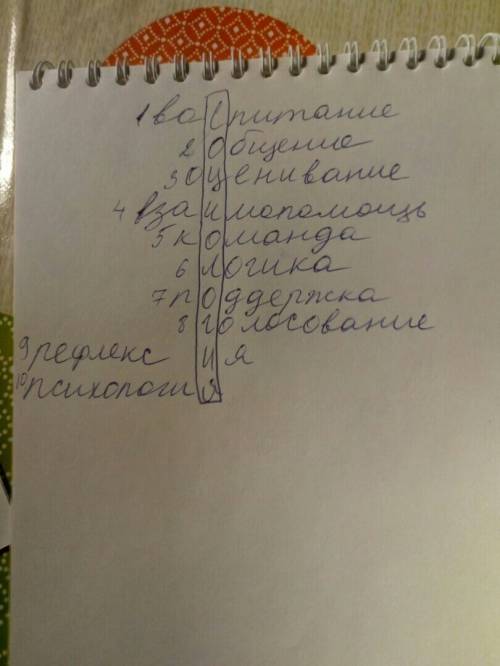 1 воспитание
2 общение
3 Оценивание
4 взаимопомощь
5 команда
6 логика
7 поддержка
8 голосование
9 рефлекс и я
10 психология